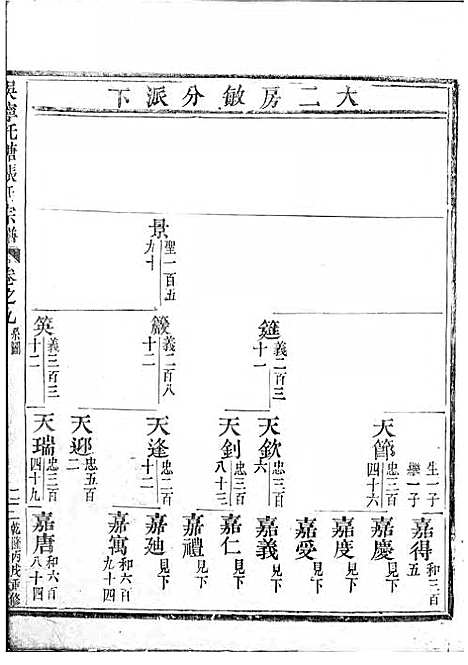 大二房敏分派下
景 聖一百五九十
筵 義二百三十一
簽 義二百八十二
筴 義三百三十二
生一子
樂一子
天節 忠三百四十六
天欽 忠三百六
天釗 忠三百八十三
天逢 忠二百十二
天迎 忠五百二
天瑞 忠三百四十九
嘉得 和三百五
嘉慶 見下
嘉度 見下
嘉愛 見下
嘉義 見下
嘉仁 見下
嘉禮 見下
嘉廸 見下
嘉寓 和六百九十四
嘉唐 和六百八十四
吳寧托塘張氏宗譜 卷之九 系圖
乾隆丙戌重修